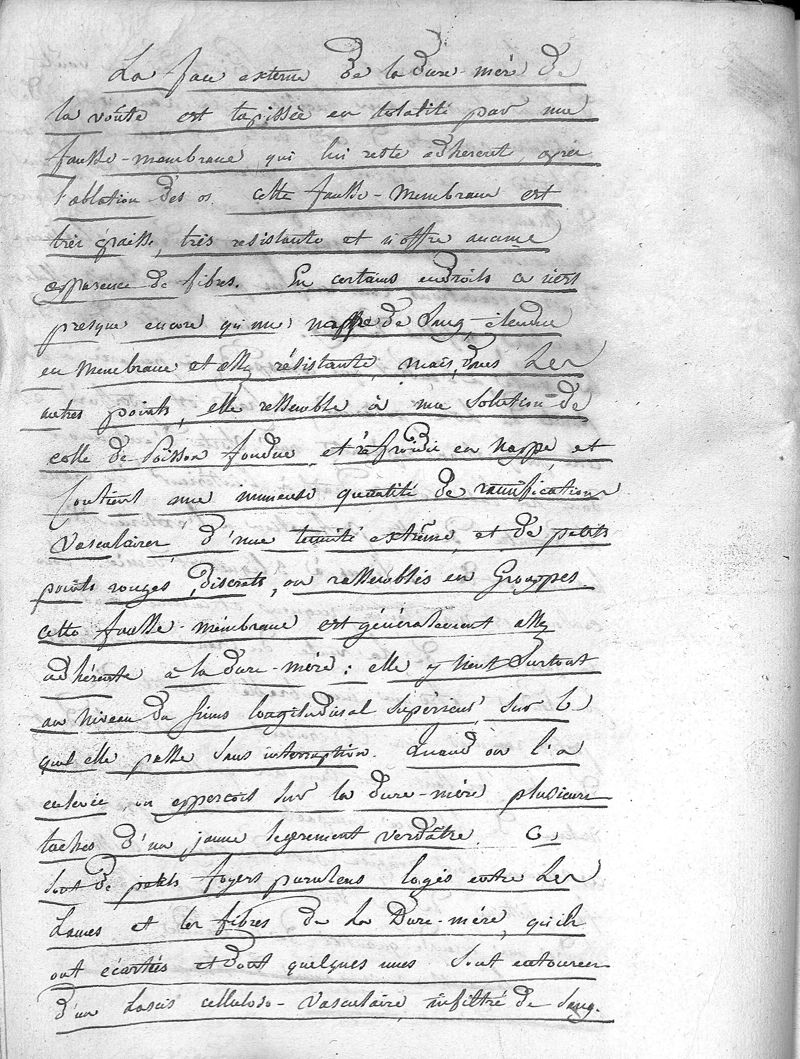 La face externe de la dure-mère de
la voûte est tapissée en totalité par une
fausse-membrane, qui lui reste adhérent, après
l'ablation des os. cette fausse-membrane est
très épaisse, très resistante et n'offre aucune
apparence de fibres. En certains endroits ce n'est
presque encore qu'une nappe de sang, étendue
en membrane et assez résistante, mais, dans les
autres points, elle ressemble à une solution de
colle de Poisson fondue, et réfroidie en nappe, et
contient une immense quantité de ramifications
vasculaires d'une tenuité extrême, et de petits
points rouges, discrets, ou rassemblés en Grouppes.
cette fausse-mémbrane est généralement assez
adhérente à la dure-mère: elle y tient surtout
au niveau du sinus longitudinal supérieur, sur le
quel elle passe sans interruption. Quand on l'a
enlevée on apperçoit sur la dure-mère plusieurs
taches d'un jaune legerement verdâtre. Ce
sont de petits foyers purulens logés entre les
Lames et les fibres de la Dure-mère, qu'ils
ont écartées et dont quelques unes sont entourées
d'un Lascis celluloso-vasculaire, infiltré de sang.